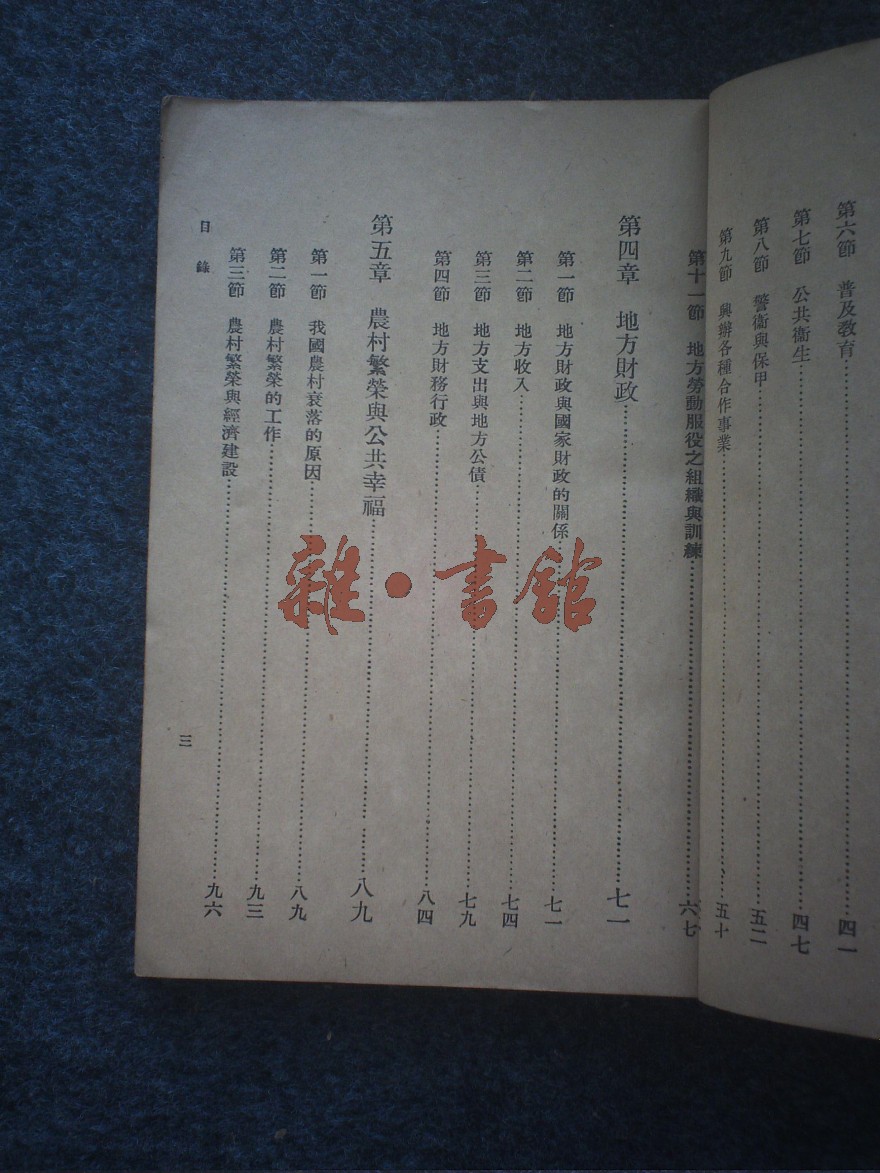 第六節　普及敎育……四一
第七節　公共衞生……四七
第八節　警衞與保甲……五二
第九節　興辦各種合作事業……五十
第十一節　地方勞動服役之組織與訓練……六七
第四章　地方財政……七一
第一節　地方財政與國家財政的關係……七一
第二節　地方收入……七四
第三節　地方支出與地方公債……七九
第四節　地方財務行政……八四
第五章　農村繁榮與公共幸福……八九
第一節　我國農村衰落的原因……八九
第二節　農村繁榮的工作……九三
第三節　農村繁榮與經濟建設……九六
目錄
三
雜·書館